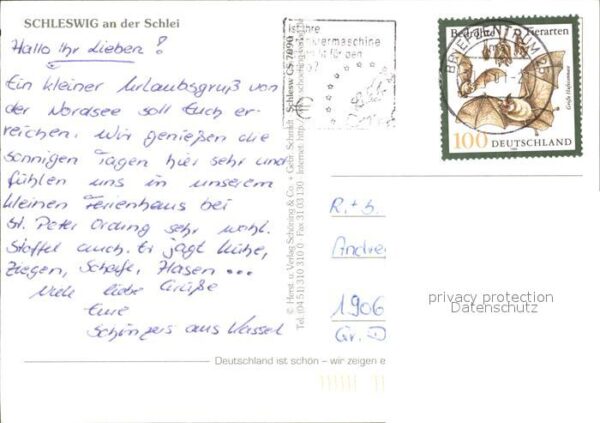 SCHLESWIG an der Schlei
Hallo Ihr Lieben!
Ein kleiner Urlaubsgruß von
der Nordsee soll Euch er-
reichen. Wir genießen die
sonnigen Tagen hier sehr und
fühlen uns in unserem
kleinen Ferienhaus bei
St. Peter Ording sehr wohl.
Staffel auch. Er jagt Kühe,
Ziegen, Schafe, Hasen ...
Viele liebe Grüße
Eure
aus Kassel
© Herst. u. Verlag Schöning & Co. + Gebr. Schmidt
Tel. (04 51) 310 310 0 Fax 31 03 130
Schlesw GS 7090
Ist Ihre
für den
Bedrohte Tierarten
Große Hufeisennase
100 DEUTSCHLAND
BRIEFZENTRUM 25
R. + H.
Andre
1906
Gr. D
privacy protection
Datenschutz
Deutschland ist schön – wir zeigen e